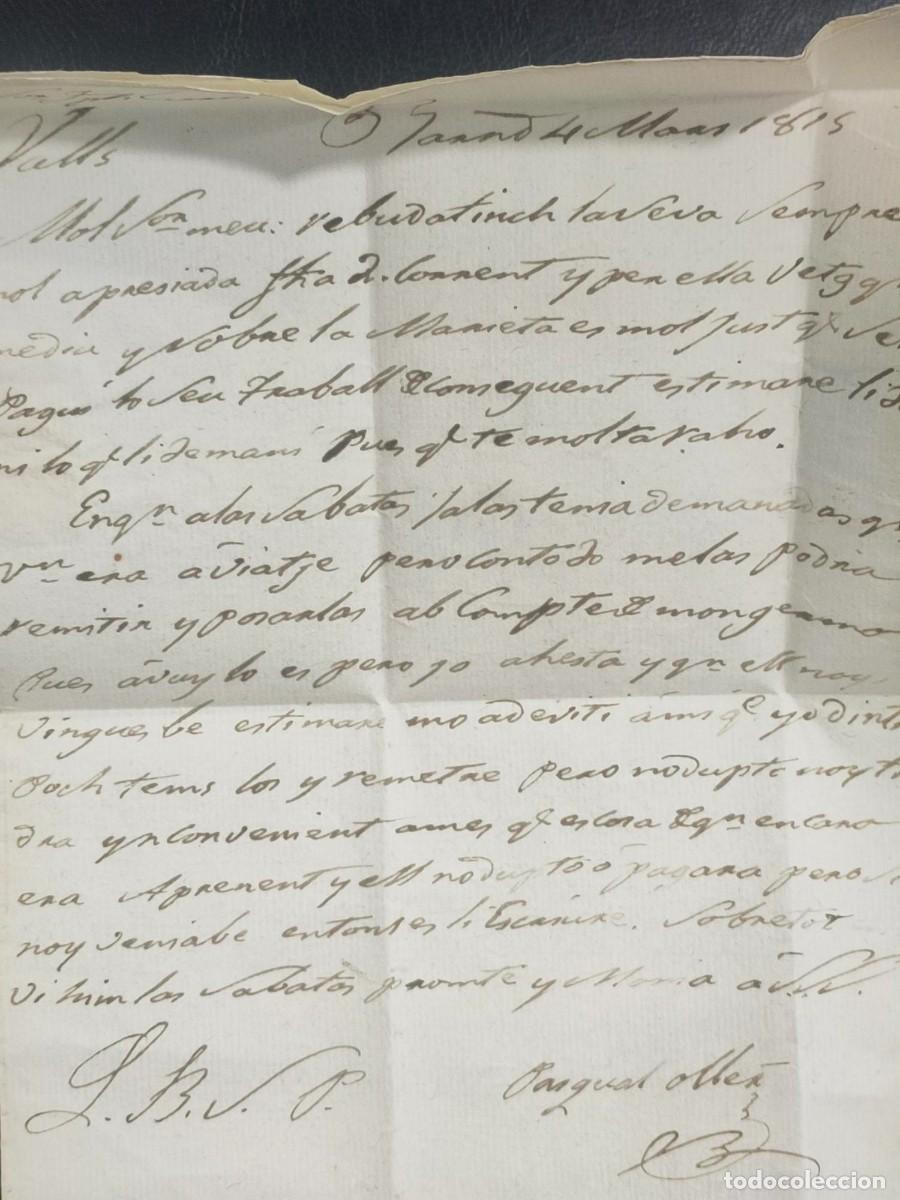 Valls
4 Mars 1815
Mol Sor. meu: rebuda tinch la seva sempre
mol apresiada fha d. Corrent y per ella Vetg q
media y sobre la Marieta es mol just qe. se
Pagui lo Seu traball & conseguent estimare li
ni lo qe. li demani Pues qe. te molta raho.
Enqn. a las Sabatas ja las tenia demanadas
era á viatje pero contodo me las podria
remitir y posarlas ab Compte & mon germa
Pues á vuy lo es pero jo ahesta y qn. ell noy
vingues be estimare mo adeviti á mi qe. yo dint
Poch tems los y remetre pero no dupto noy tin
dra ynconvenient a mes qe. es cosa & qn. encara
era Aprenent y ell no dupto ó pagara pero si
noy venia be entonses li Escriure. Sobretot
vihin las Sabatas promte y Mana á S.S.
L. B. S. P.
Pasqual Oller
todocoleccion